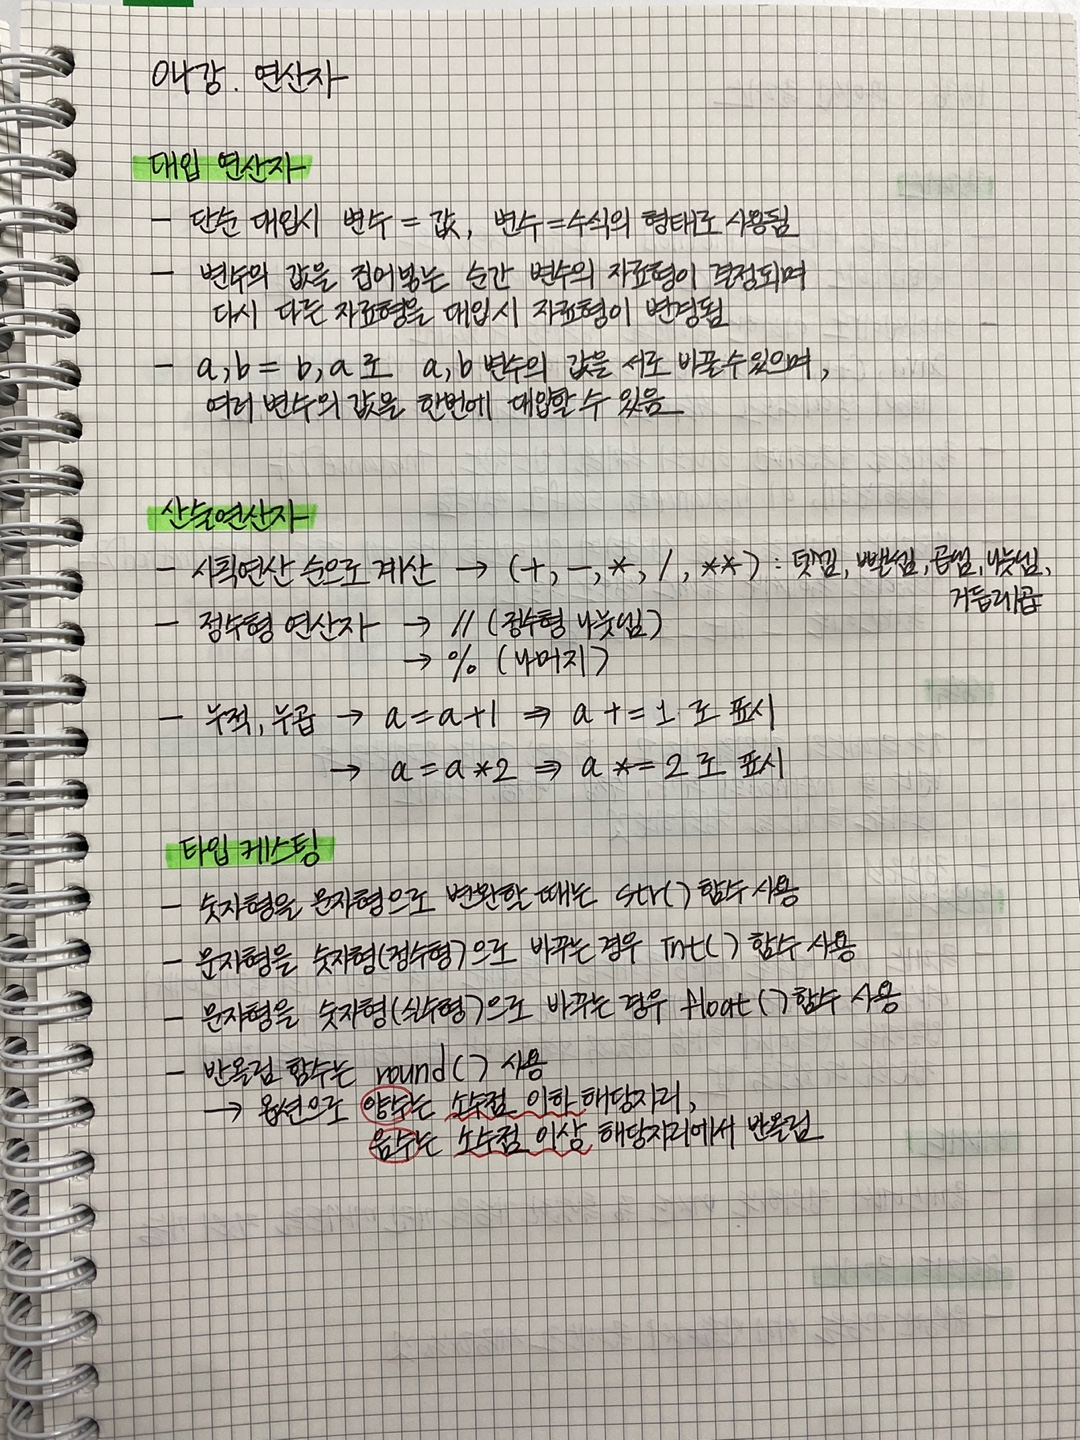 04강. 연산자
대입 연산자
- 단순 대입시 변수 = 값, 변수=수식의 형태로 사용됨
- 변수의 값을 집어넣는 순간 변수의 자료형이 결정되며
다시 다른 자료형을 대입시 자료형이 변경됨
- a,b = b,a 로 a,b 변수의 값을 서로 바꿀수있으며,
여러 변수의 값을 한번에 대입할 수 있음
산술연산자
- 사칙연산 순으로 계산 → (+, -, *, /, **) : 덧셈, 뺄셈, 곱셈, 나눗셈,
거듭제곱
- 정수형 연산자 → // (정수형 나눗셈)
→ % (나머지)
- 누적, 누곱 → a = a+1 ⇒ a += 1 로 표시
→ a = a*2 ⇒ a *= 2 로 표시
타입 케스팅
- 숫자형을 문자형으로 변환할 때는 str() 함수 사용
- 문자형을 숫자형(정수형)으로 바꾸는 경우 int() 함수 사용
- 문자형을 숫자형(실수형)으로 바꾸는 경우 float() 함수 사용
- 반올림 함수는 round() 사용
→ 옵션으로 양수는 소수점 이하 해당자리,
음수는 소수점 이상 해당자리에서 반올림